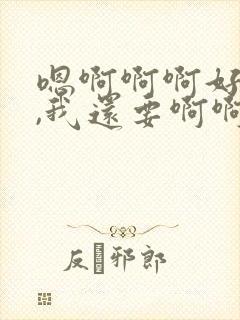 嗯啊啊啊好
,我还要啊啊
反 邪郎